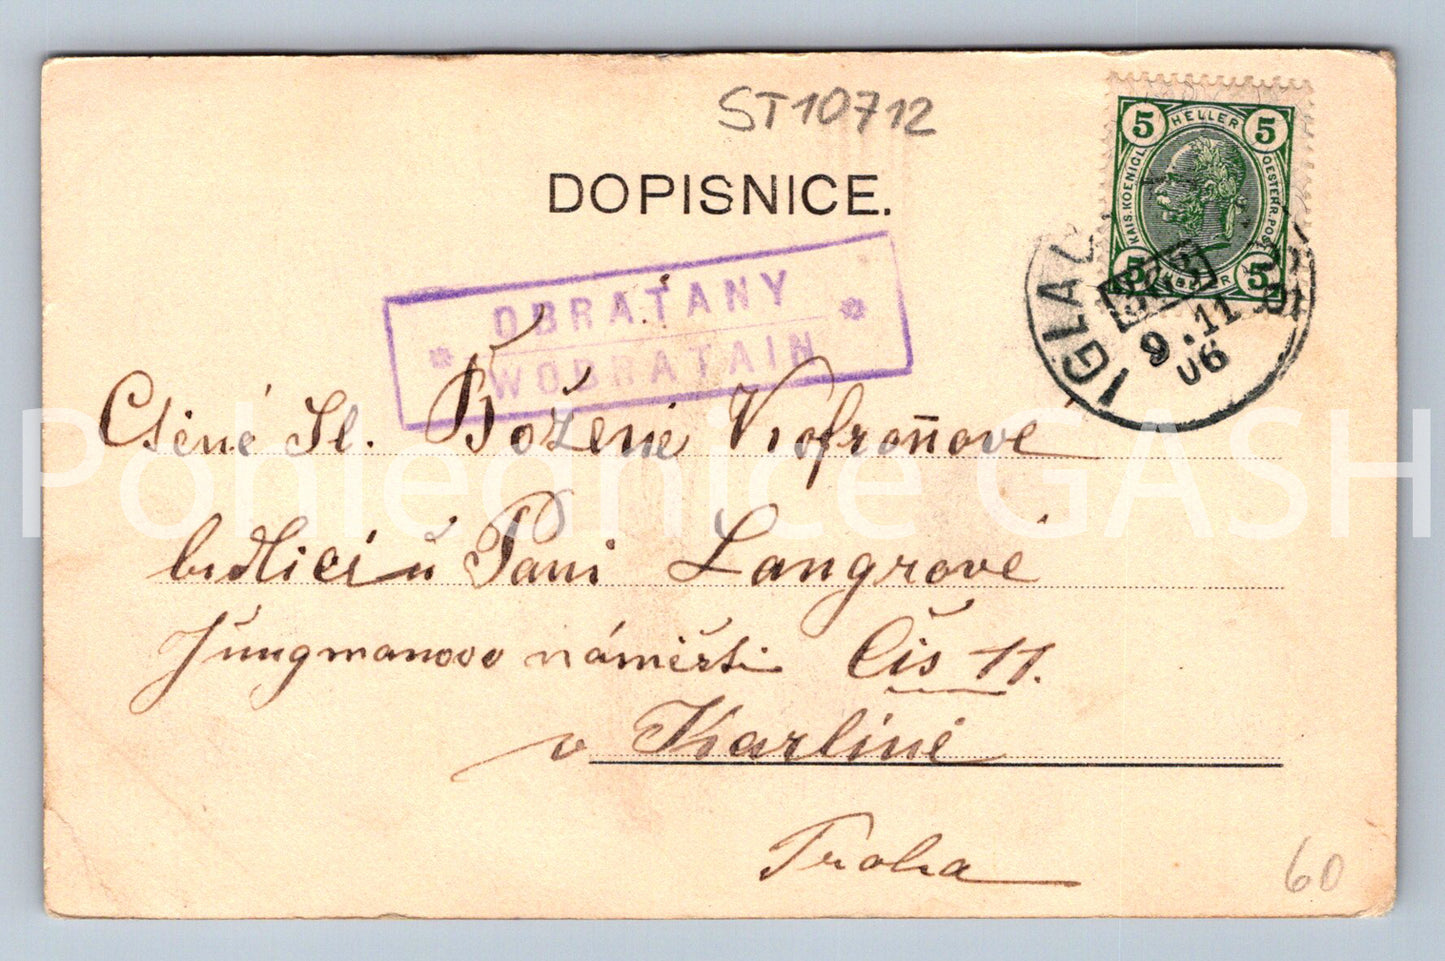 ST10712
DOPISNICE.
5 HELLER 5
KAIS. KOENIGL. OESTERR. POST
5 HELLER 5
IGLAU
9.11
06
OBRATANY
WOBRATAIN
Ctěné Sl. Boženě Kofroňove
bidlici u Pani Langrové
Jungmanovo náměsti Čis 11.
v Karlíně
Praha
60
Pohlednice GASH